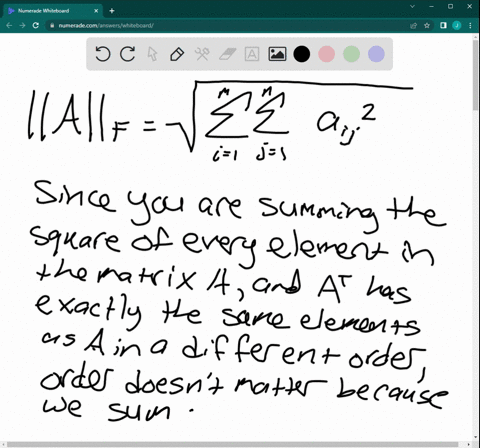 Numerade Whiteboard
numerade.com/answers/whiteboard/
||A||_F = √(∑_{i=1}^{m} ∑_{j=1}^{n} a_{ij}^2)
Since you are summing the
square of every element in
the matrix A, and A^T has
exactly the same elements
as A in a different order,
order doesn't matter because
we sum.